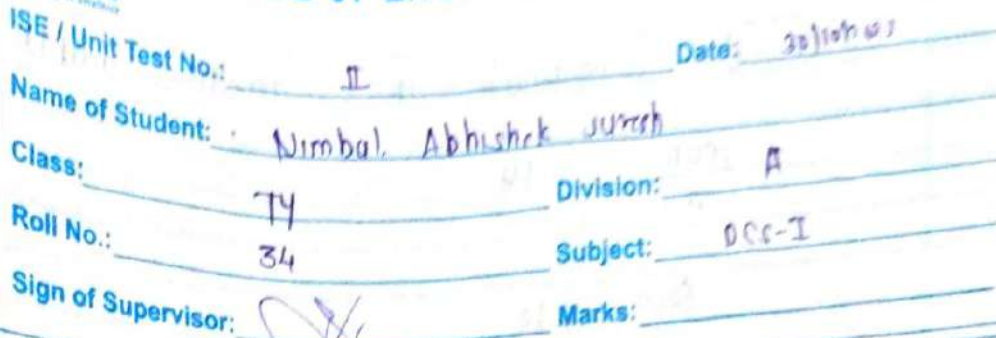 ISE / Unit Test No.: II Date:
Name of Student: Nimbal Abhishek Suresh
Class: TY Division: A
Roll No.: 34 Subject: DCS-I
Sign of Supervisor: Marks: